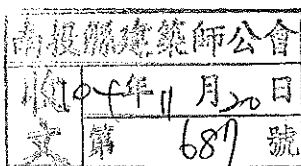 南投縣建築師公會
收文 104年11月20日
第 687 號